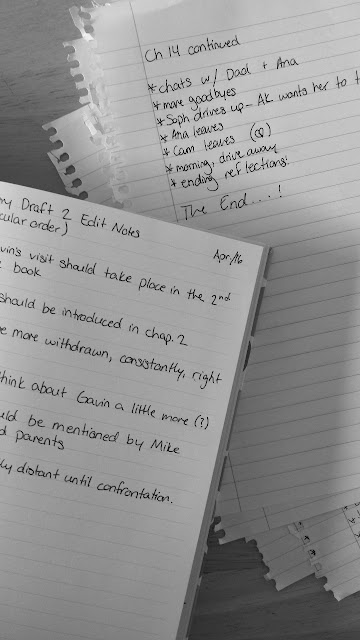 Ch 14 continued
* chats w/ Dad + Ana
* more goodbyes
* Soph drives up - AK wants her to
* Ana leaves
* Cam leaves
* morning, drive away
* ending reflections!
The End....!
my Draft 2 Edit Notes
cular order)
Apr/16
vin's visit should take place in the 2nd
book
should be introduced in chap. 2
e more withdrawn, consistantly, right
think about Gavin a little more (?)
uld be mentioned by Mike
d parents
ly distant until confrontation.